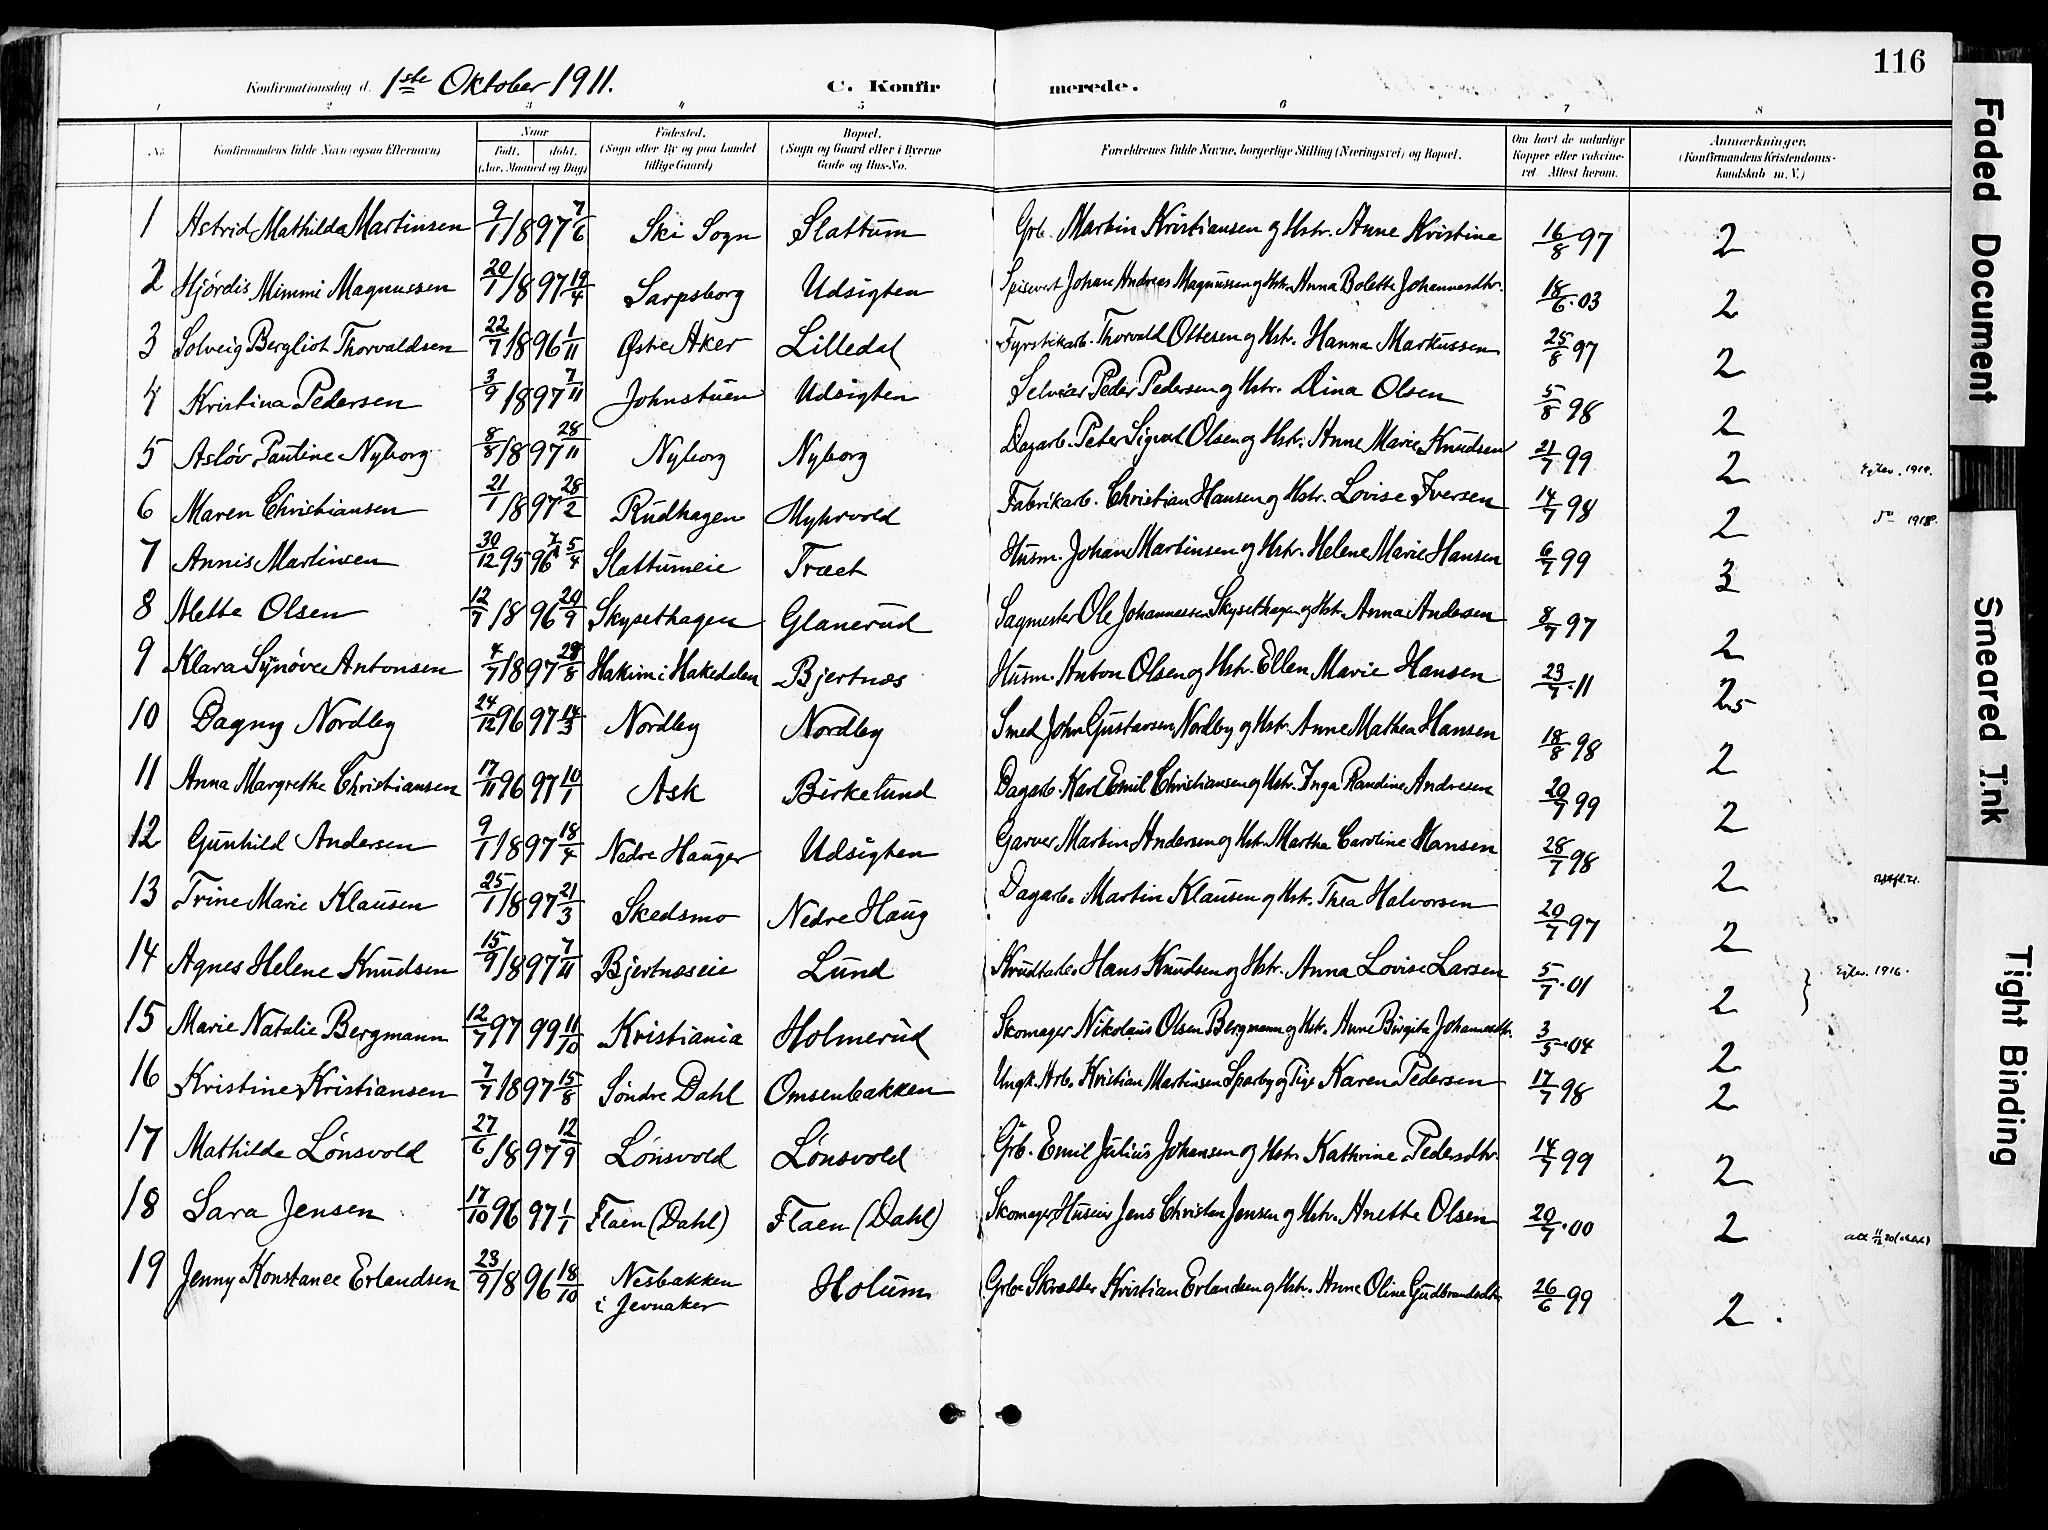 116
Konfirmationsdag d. 1ste Oktober 1911. C. Konfirmerede.
1 2 3 4 5 6 7 8
No. Konfirmandens fulde Navn (ogsaa Efternavn) Naar Født. døbt. (Aar, Maaned og Dag) Fødested. (Sogn eller By og paa Landet tillige Gaard) Bopæl. (Sogn og Gaard eller i Byerne Gade og Hus-No. Forældrenes fulde Navne, borgerlige Stilling (Næringsvei) og Bopæl. Om havt de naturlige Kopper eller vaccineret. Attest herom. Anmerkninger. (Konfirmandens Kristendomskundskab m. V.)
1 Astrid Mathilda Martinsen 9/1 1897 7/6 Ski Sogn Slattum Grb. Martin Kristiansen og Hstr. Anne Kristine 16/8 97 2
2 Hjørdis Mimmi Magnussen 20/1 1897 19/4 Sarpsborg Udsigten Spisevert Johan Andreas Magnussen og Hstr. Anna Bolette Johannesdtr. 18/6 03 2
3 Solveig Bergliot Thorvaldsen 22/7 1896 1/11 Østre Aker Lilledal Fyrstikarb. Thorvald Ottesen og Hstr. Hanna Markussen 25/8 97 2
4 Kristina Pedersen 3/9 1897 7/11 Johnstuen Udsigten Selveier Peder Pedersen og Hstr. Dina Olsen 5/8 98 2
5 Asløv Pauline Nyborg 8/8 1897 28/11 Nyborg Nyborg Dagarb. Peter Sigvart Olsen og Hstr. Anne Marie Knudsen 21/7 99 2 1919.
6 Maren Christiansen 21/1 1897 28/2 Rudhagen Myhrvold Fabrikarb. Christian Hansen og Hstr. Lovise Iversen 14/7 98 2 do 1918.
7 Annis Martinsen 30/12 95 96 5/4 Slattumeie Træet Husm. Johan Martinsen og Hstr. Helene Marie Hansen 6/7 99 3
8 Alette Olsen 12/7 1896 20/9 Skysethagen Glanerud Sagmester Ole Johannessen Skysethagen og Hstr. Anna Andersen 8/7 97 2
9 Klara Synøve Antonsen 4/7 1897 29/8 Hakim i Hakedalen Bjertnæs Husm. Anton Olsen og Hstr. Ellen Marie Hansen 23/7 11 2.5
10 Dagny Nordby 24/12 96 97 14/3 Nordby Nordby Smed John Gustavsen Nordby og Hstr. Anne Mathea Hansen 18/8 98 2
11 Anna Margrethe Christiansen 17/11 96 97 10/1 Ask Birkelund Dagarb. Karl Emil Christiansen og Hstr. Inga Randine Andresen 20/7 99 2
12 Gunhild Andersen 9/1 1897 18/4 Nedre Hauger Udsigten Garver Martin Andersen og Hstr. Martha Caroline Hansen 28/7 98 2
13 Trine Marie Klausen 25/1 1897 21/3 Skedsmo Nedre Haug Dagarb. Martin Klausen og Hstr. Thea Halvorsen 20/7 97 2
14 Agnes Helene Knudsen 15/9 1897 7/11 Bjertnæseie Lund Krudtarb. Hans Knudsen og Hstr. Anna Lovise Larsen 5/7 01 2 1916.
15 Marie Natalie Bergmann 12/7 97 99 11/10 Kristiania Holmerud Skomager Nikolaus Olsen Bergmann og Hstr. Anne Birgita Johannesdtr. 3/5 04 2
16 Kristine Kristiansen 7/7 1897 15/8 Søndre Dahl Omsenbakken Ungk. Arb. Kristian Martinsen Sparby og Pige Karen Pedersen 17/7 98 2
17 Mathilde Lønsvold 27/6 1897 12/9 Lønsvold Lønsvold Grb. Emil Julius Johansen og Hstr. Kathrine Pedersdtr. 14/7 99 2
18 Sara Jensen 17/10 96 97 1/1 Flaen (Dahl) Flaen (Dahl) Skomager, Huseier Jens Christen Jensen og Hstr. Anette Olsen 20/7 00 2
19 Jenny Konstance Erlandsen 23/9 1896 18/10 Nesbakken i Jevnaker Holum Grbr. Skrædder Kristian Erlandsen og Hstr. Anne Oline Gudbrandsdtr. 26/6 99 2
Faded Document
Smeared Ink
Tight Binding